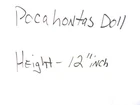 Pocahontas Doll
Height - 12" inch